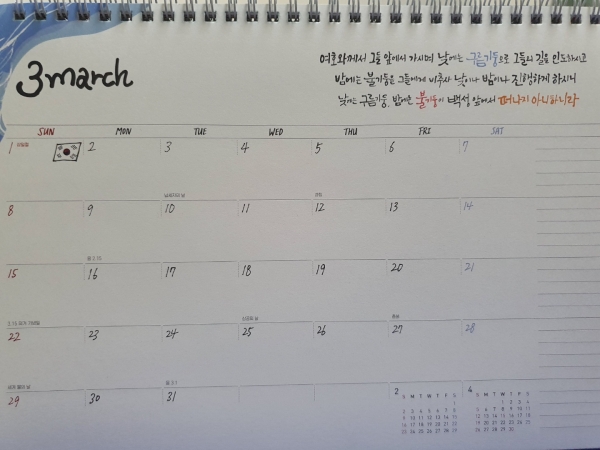 3 march
여호와께서 그들 앞에서 가시며 낮에는 구름기둥으로 그들의 길을 인도하시고
밤에는 불기둥을 그들에게 비추사 낮이나 밤이나 진행하게 하시니
낮에는 구름기둥, 밤에는 불기둥이 백성 앞에서 떠나지 아니하니라
SUN MON TUE WED THU FRI SAT
1 삼일절 2 3 4 5 6 7
납세자의 날 경칩
8 9 10 11 12 13 14
음 2.15
15 16 17 18 19 20 21
3.15 의거 기념일 상공의 날 춘분
22 23 24 25 26 27 28
세계 물의 날 음 3.1
29 30 31
2 4
S M T W T F S S M T W T F S
1 1 2 3 4
2 3 4 5 6 7 8 5 6 7 8 9 10 11
9 10 11 12 13 14 15 12 13 14 15 16 17 18
16 17 18 19 20 21 22 19 20 21 22 23 24 25
23 24 25 26 27 28 29 26 27 28 29 30